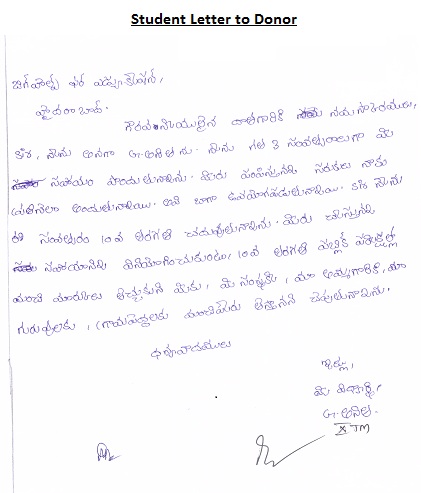 Student Letter to Donor
బిగ్ హెల్ప్ ఫర్ ఎడ్యుకేషన్,
హైదరాబాద్.
గౌరవనీయులైన దాతగారికి నమస్కారములు,
సార్, నేను అనగా G. అనిత ను. నేను గత 3 సంవత్సరాలుగా మీ
సహాయం పొందుతున్నాను. మీరు పంపిస్తున్న సరుకులు నాకు
ప్రతినెలా అందుతున్నాయి. అవి బాగా ఉపయోగపడుతున్నాయి. నేను
ఈ సంవత్సరం 10వ తరగతి చదువుతున్నాను. మీరు చేస్తున్న
సహాయాన్ని వినియోగించుకుంటూ, 10వ తరగతి పబ్లిక్ పరీక్షల్లో
మంచి మార్కులు తెచ్చుకుని మీకు, మీ సంస్థకు, మా అమ్మగారికి, మా
గురువులకు, గ్రామపెద్దలకు మంచిపేరు తెస్తానని చెప్పుతున్నాను.
ధన్యవాదములు
ఇట్లు,
మీ విద్యార్థి
G. అనిత.
X TM